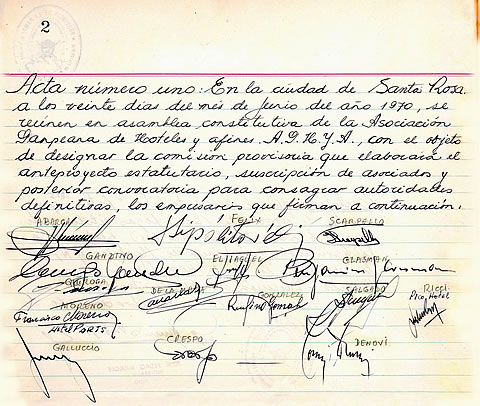 2
Acta número uno: En la ciudad de Santa Rosa,
a los veinte dias del mes de Junio del año 1970, se
reúnen en asamblea constitutiva de la Asociación
Pampeana de Hoteles y afines A.P.H.Y.A., con el objeto
de designar la comisión provisoria que elaborará el
anteproyecto estatutario, suscripción de asociados y
posterior convocatoria para consagrar autoridades
definitivas, los empresarios que firman a continuación.
FELIX SCARPELLO
Hipólito
GANDINO GLASMAN
QUIROGA DE LA GONZALEZ SALGADO Ricci
Pico, Hotel
MORENO
Francisco Moreno Rufino Gonzalez
Hotel PORTS
GALLUCCIO CRESPO DENOVI